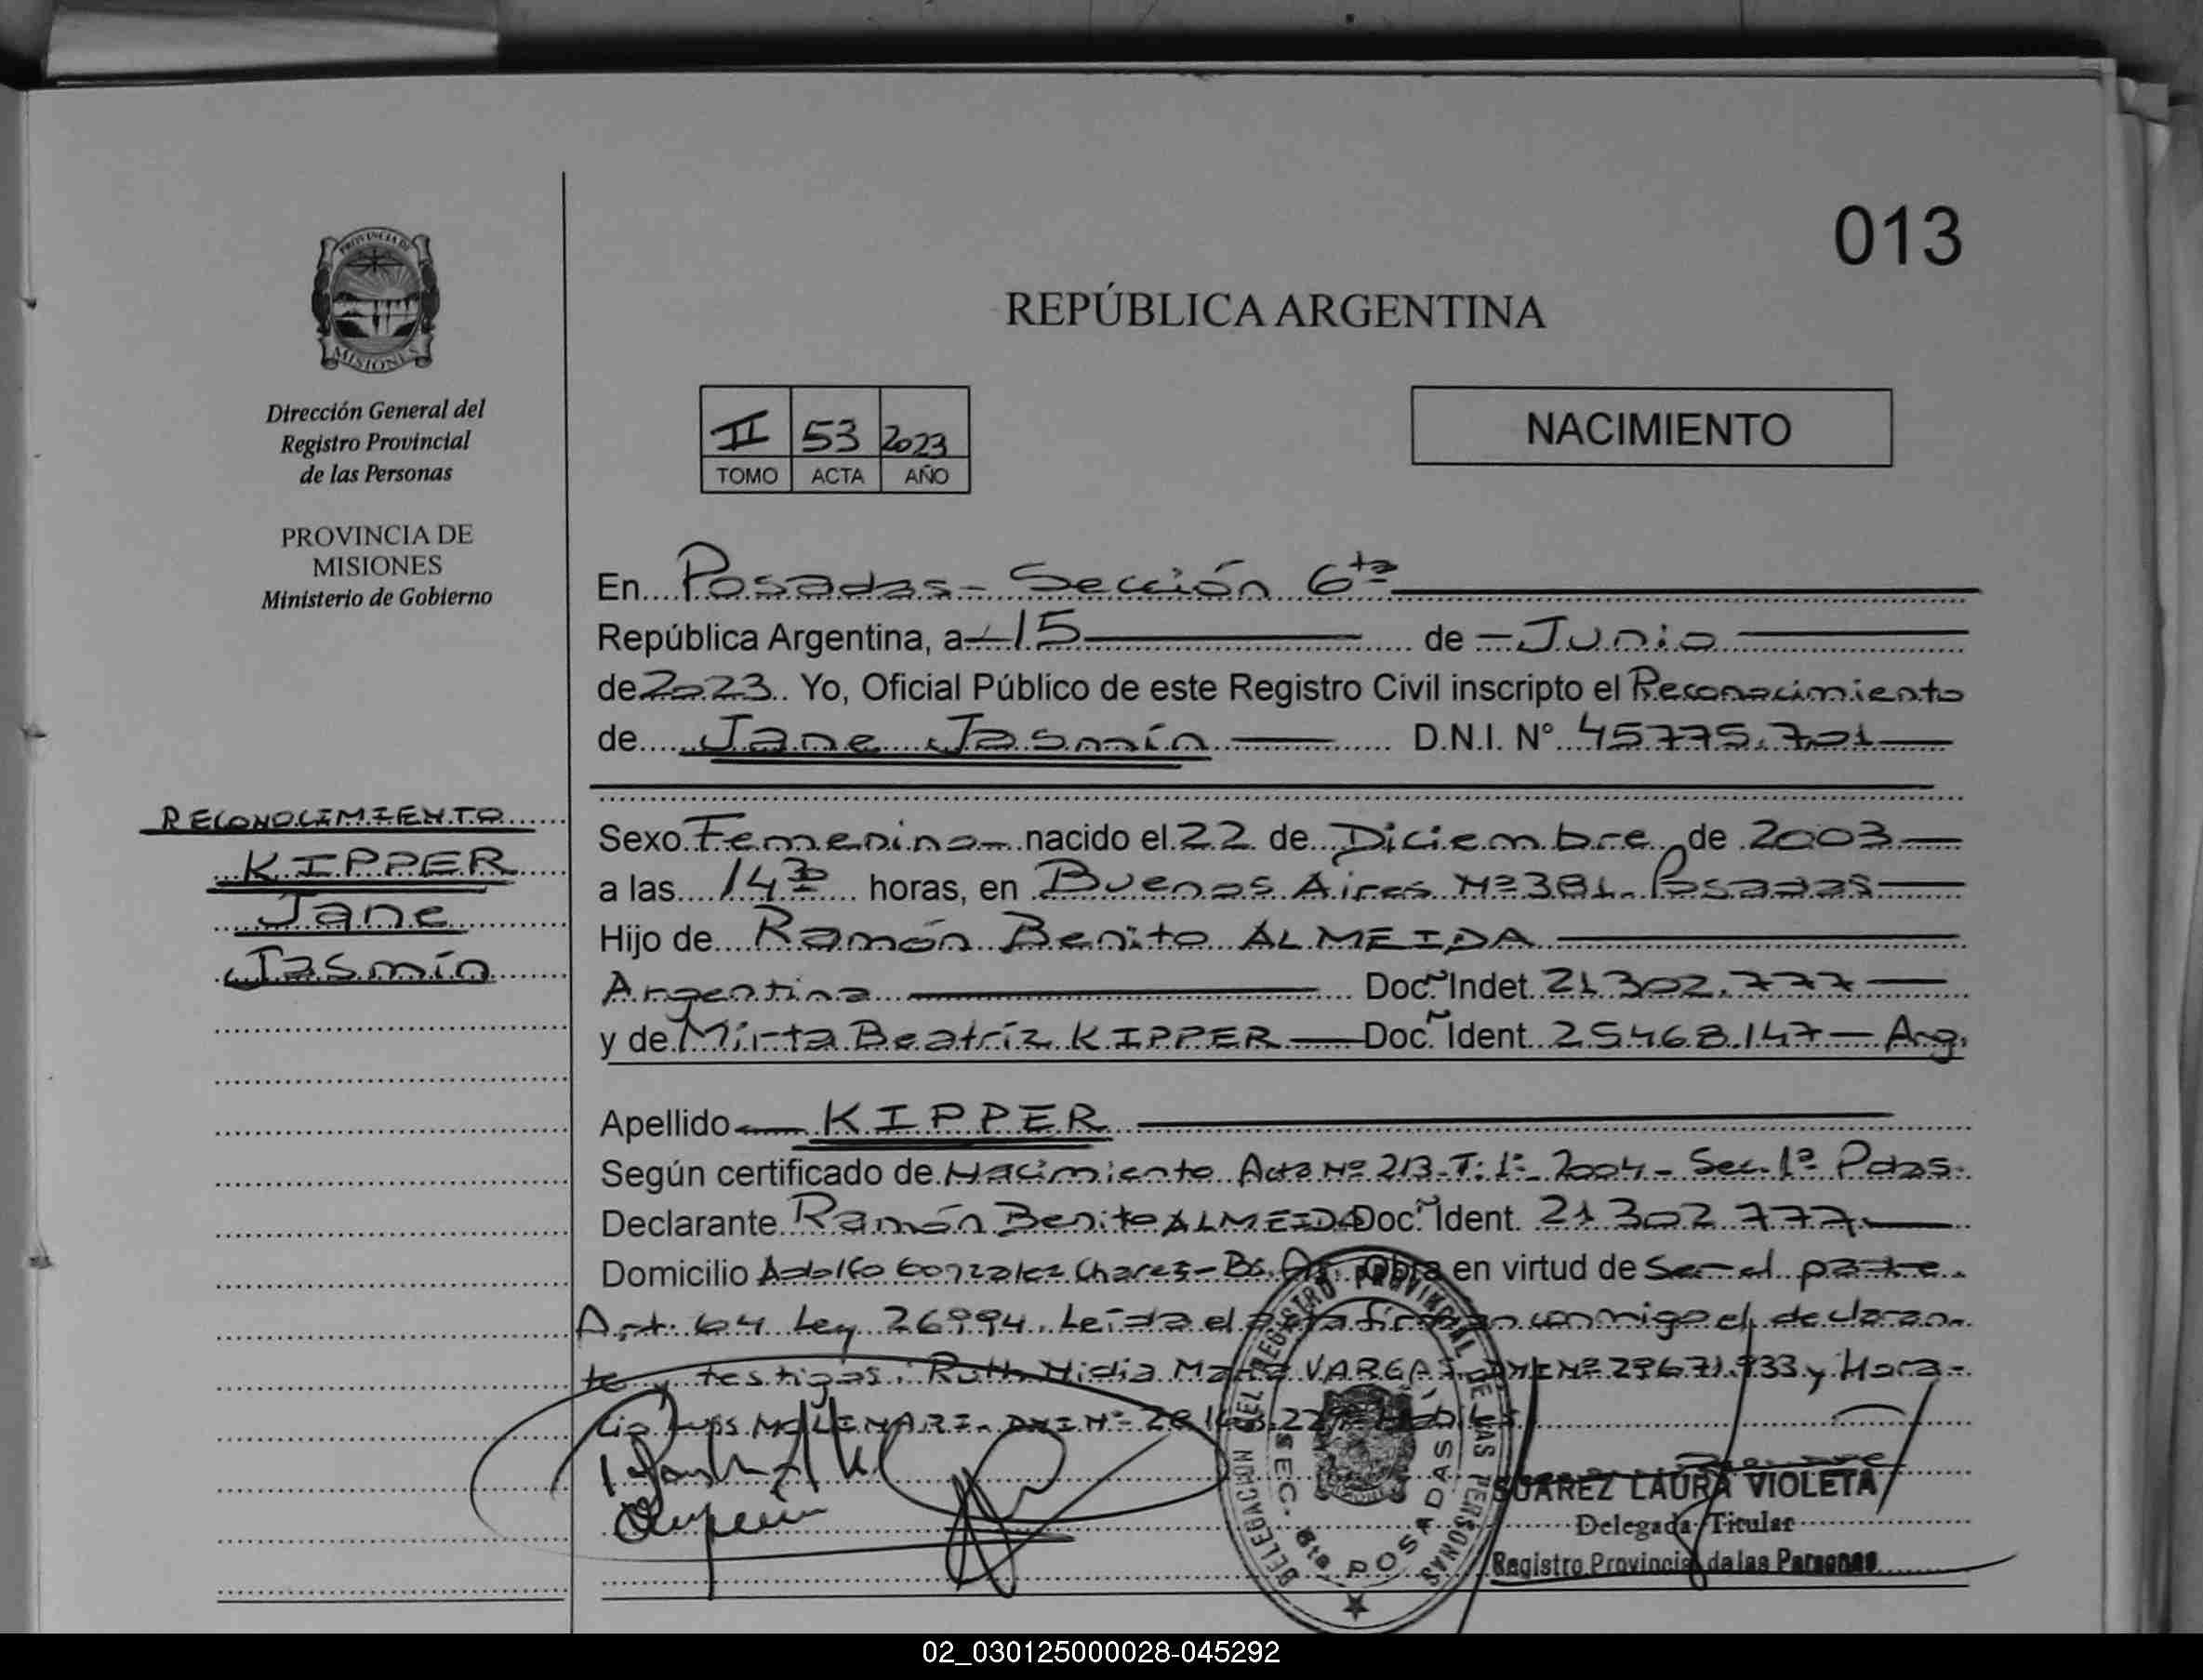 013
PROVINCIA DE
MISIONES
Dirección General del
Registro Provincial
de las Personas
PROVINCIA DE
MISIONES
Ministerio de Gobierno
REPÚBLICA ARGENTINA
II 53 2023
TOMO ACTA AÑO
NACIMIENTO
En Posadas - Sección 6ta
República Argentina, a 15 de Junio
de 2023. Yo, Oficial Público de este Registro Civil inscripto el Reconocimiento
de Jane Jasmín D.N.I. N° 45775.701
RECONOCIMIENTO
KIPPER
Jane
Jasmín
Sexo Femenino nacido el 22 de Diciembre de 2003
a las 14 30 horas, en Buenos Aires Nº 381 - Posadas
Hijo de Ramón Benito ALMEIDA
Argentina Doc. Indet. 21302.777
y de Mirta Beatríz KIPPER Doc. Ident. 25468.147 - Arg.
Apellido KIPPER
Según certificado de Nacimiento Acta Nº 213-T: 1º- 2004 - Sec. 1ª Pdas.
Declarante Ramón Benito ALMEIDA Doc. Ident. 21302777
Domicilio Adolfo Gonzalez Chares - Bs. As. Obra en virtud de Ser el padre.
Art. 64 Ley 26994. Leída el acta firman conmigo el declaran-
te y testigos: Ruth Nidia María VARGAS DNI Nº 29671.933 y Hora-
cio Luis MOLINARI - DNI Nº
DELEGACION DEL REGISTRO PROVINCIAL DE LAS PERSONAS
SEC. 6ta. POSADAS
SUAREZ LAURA VIOLETA
Delegada Titular
Registro Provincial de las Personas
02_030125000028-045292